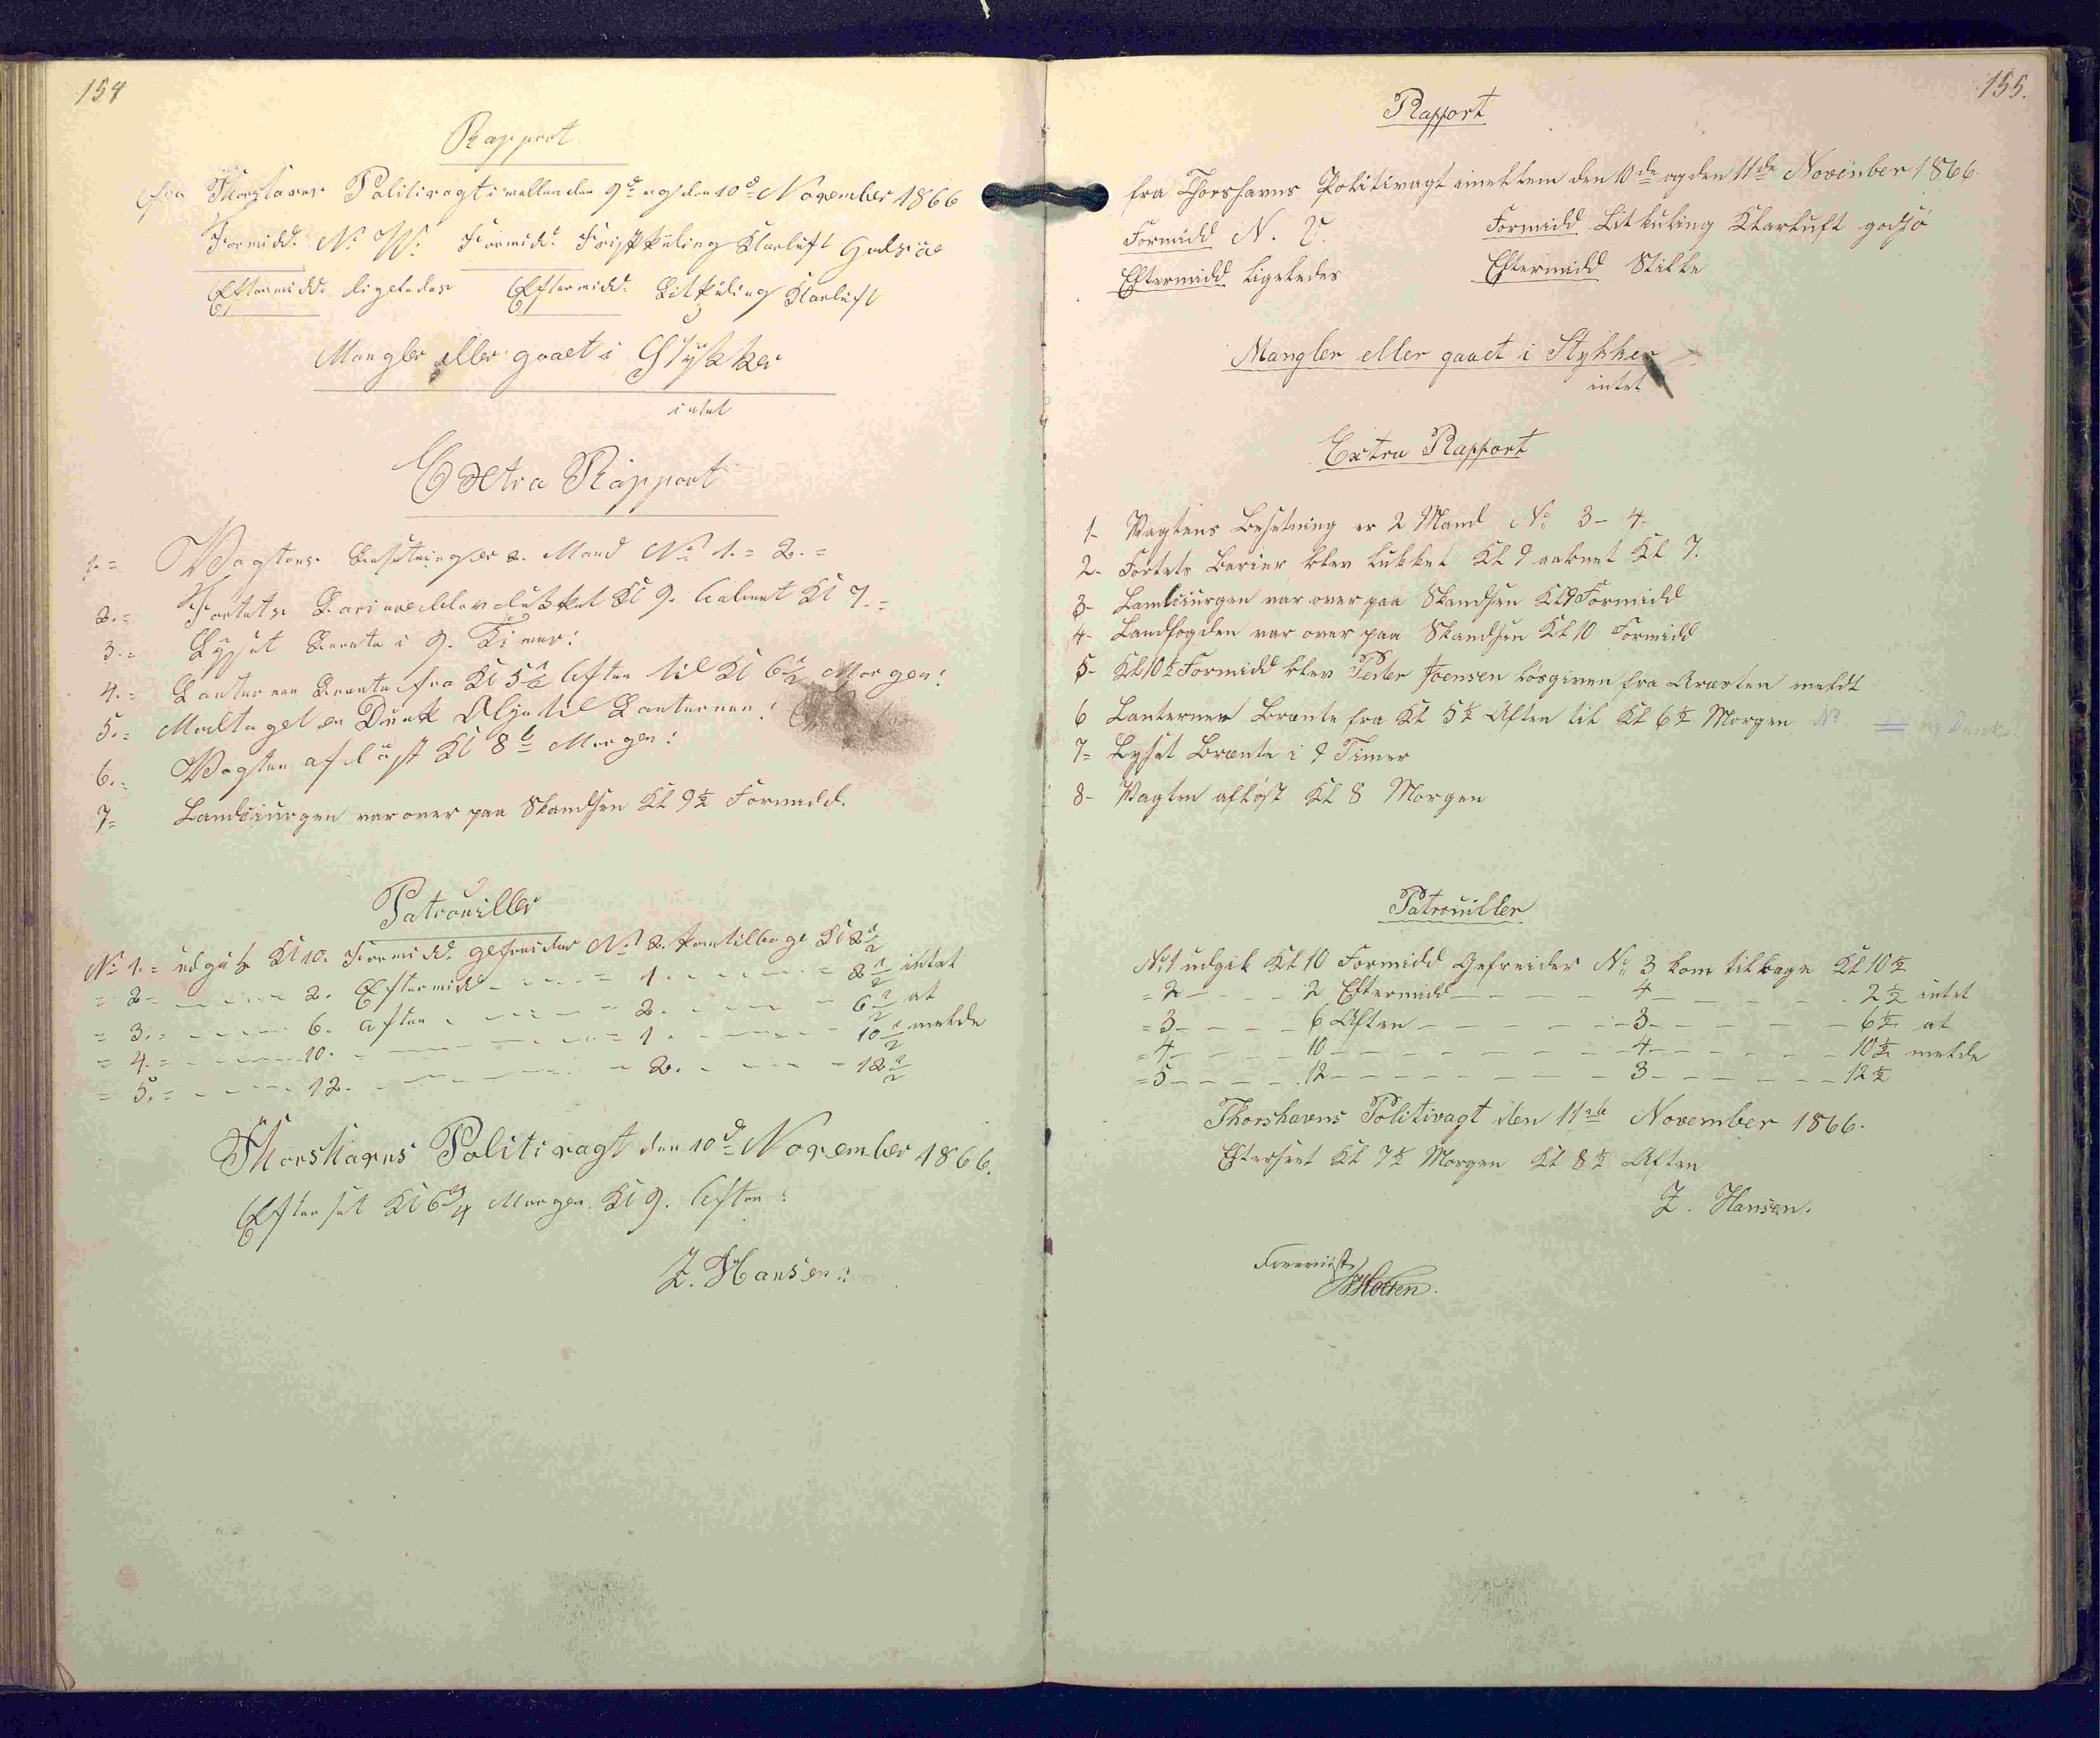 154
Rapport
fra Thorshavns Politivagt imellem den 9d og den 10d November 1866
Formidd. N. W. Formidd. Friskkuling Klarluft Godsiø
Eftermidd. ligeledes Eftermidd. Litkuling Klarluft
Mangler eller gaaet i Stykker
intet
Extra Rapport
1.= Vagtens Besetning er 2. Mand No 1. = 2. =
2.= Fortets Bariere blev lukket Kl 9. aabnet Kl 7. =
3.= Lyset Brente i 9. Timer:
4.= Lanternen Brente fra Kl 5 1/2 Aften til Kl 6 1/2 Morgen!
5.= Modtaget en Dunk Olje til Lanternen!
6.= Vagten afløst Kl 8 Morgen!
7= Landsiurgen var over paa Skandsen Kl 9 1/2 Formidd.
Patrouiller
No 1.= udgik Kl 10. Formidd. gefreider No 2. kom tilbage Kl
= 2= - - - 2. Eftermidd - - - = 1. - - - = 2 1/2 intet
= 3.= - - - 6. Aften - - - = 2. - - - = 6 1/2 at
= 4.= - - - 10. - - - = 1. - - - 10 1/2 melde
= 5.= - - - 12. - - - = 2. - - - = 12 1/2
Thorshavns Politivagt den 10d November 1866.
Efterset Kl 6 3/4 Morgen. Kl 9. Aften:
Z. Hansen:
155.
Rapport
fra Thorshavns Politivagt imellem den 10de og den 11de November 1866.
Formidd N. V. Formidd Litkuling Klarluft godsø
Eftermidd ligeledes Eftermidd Stille
Mangler eller gaaet i Stykker
intet
Extra Rapport
1- Vagtens Besetning er 2 Mand No 3- 4-
2- Fortets Barier blev lukket Kl 9 aabnet Kl 7.
3- Landsiurgen var over paa Skandsen Kl 9 Formidd
4- Landfogden var over paa Skandsen Kl 10 Formidd
5- Kl 10 1/2 Formidd blev Peter Joensen løsgiven fra Aræsten meldt
6 Lanternen Brænte fra Kl 5 1/2 Aften til Kl 6 1/2 Morgen
7= Lyset Brænte i 9 Timer
8- Vagten afløst Kl 8 Morgen
Patrouiller
No 1 udgik Kl 10 Formidd Gefreider No 3 kom tilbage Kl 10 1/2
= 2 - - - 2 Eftermidd - - - 4 - - - 2 1/2 intet
= 3 - - - 6 Aften - - - 3 - - - 6 1/2 at
= 4 - - - 10 - - - 4 - - - 10 1/2 melde
= 5 - - - 12 - - - 3 - - - 12 1/2
Thorshavns Politivagt den 11te November 1866.
Efterseet Kl 7 1/2 Morgen Kl 8 1/2 Aften
Z. Hansen.
Foreviist